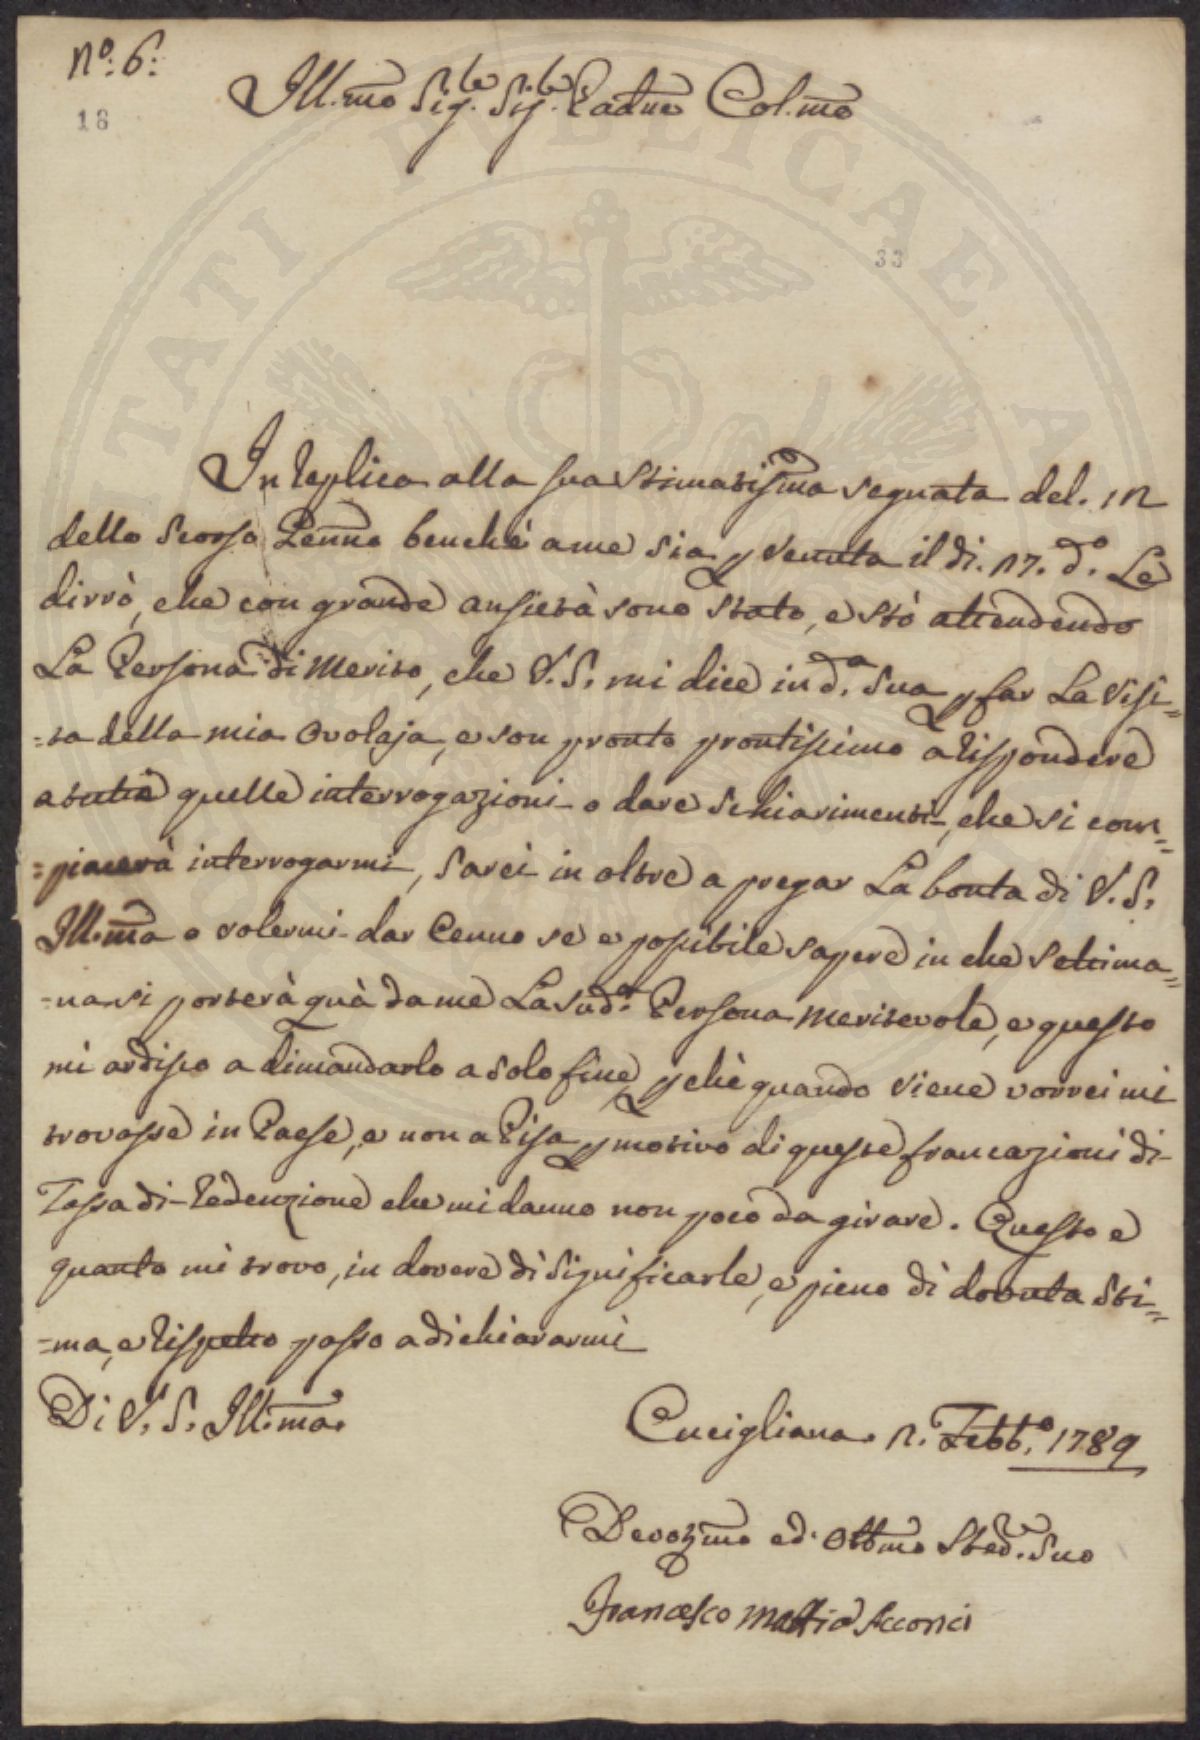 N.º 6:
18
Ill.mo Sig.re Sig.re Padne Col.mo
33
In replica alla sua stimatissma segnata del. 12
dello scorso Genno benchè a me sia p venuta il di. 17. do. Le
dirrò, che con grande ansietà sono stato, e stò attendendo
La Persona di Merito, che V. S. mi dice in d.a Sua p far La Visi=
=ta della mia Ovolaja, e son pronto prontissimo a rispondere
a tutte quelle interrogazioni o dare schiarimenti, che si com=
=piacerà interrogarmi, sarei in oltre a pregar La bonta di V. S.
Ill.ma a volermi dar Cenno se e possibile sapere in che settima=
=na si porterà quà da me La Sud.a Persona meritevole, e questo
mi ardisco a dimandarlo a solo fine, p chè quando viene vorrei mi
trovasse in Paese, e non a Pisa p motivo di queste francazioni di
Tassa di Redenzione che mi danno non poco da girare. Questo e
quanto mi trovo, in dovere di significarle, e pieno di dovuta sti=
=ma, e rispetto passo a dichiararmi
Di V. S. Ill.ma.
Cucigliana. 2. Febb.o 1789
Devotmo ed. Obbmo Sred.e Suo
Francesco Mattia Acconci